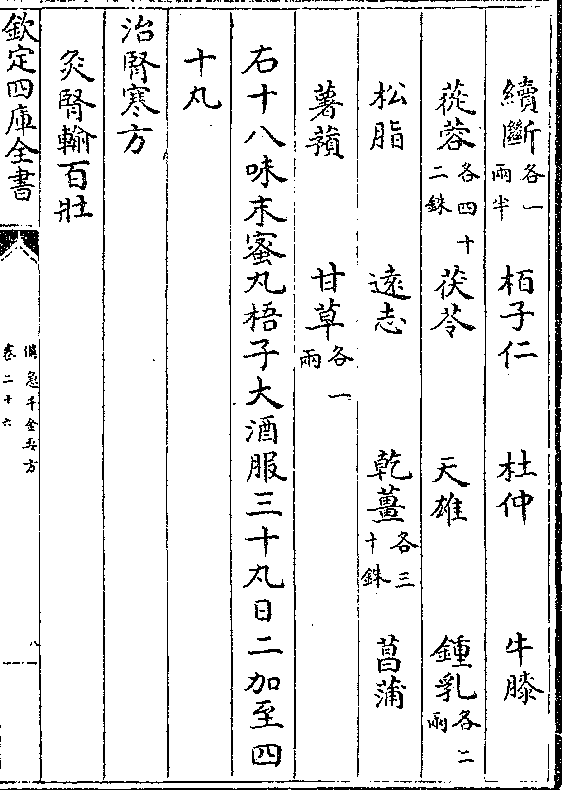 續斷各一兩半 栢子仁 杜仲 牛膝
蓯蓉各四十二銖 茯苓 天雄 鍾乳各二兩
松脂 遠志 乾薑各三十銖 菖蒲
薯蕷 甘草各一兩
右十八味末蜜丸梧子大酒服三十丸日二加至四
十丸
治腎寒方
灸腎輸百壯
欽定四庫全書
備急千金要方
卷二十六
八